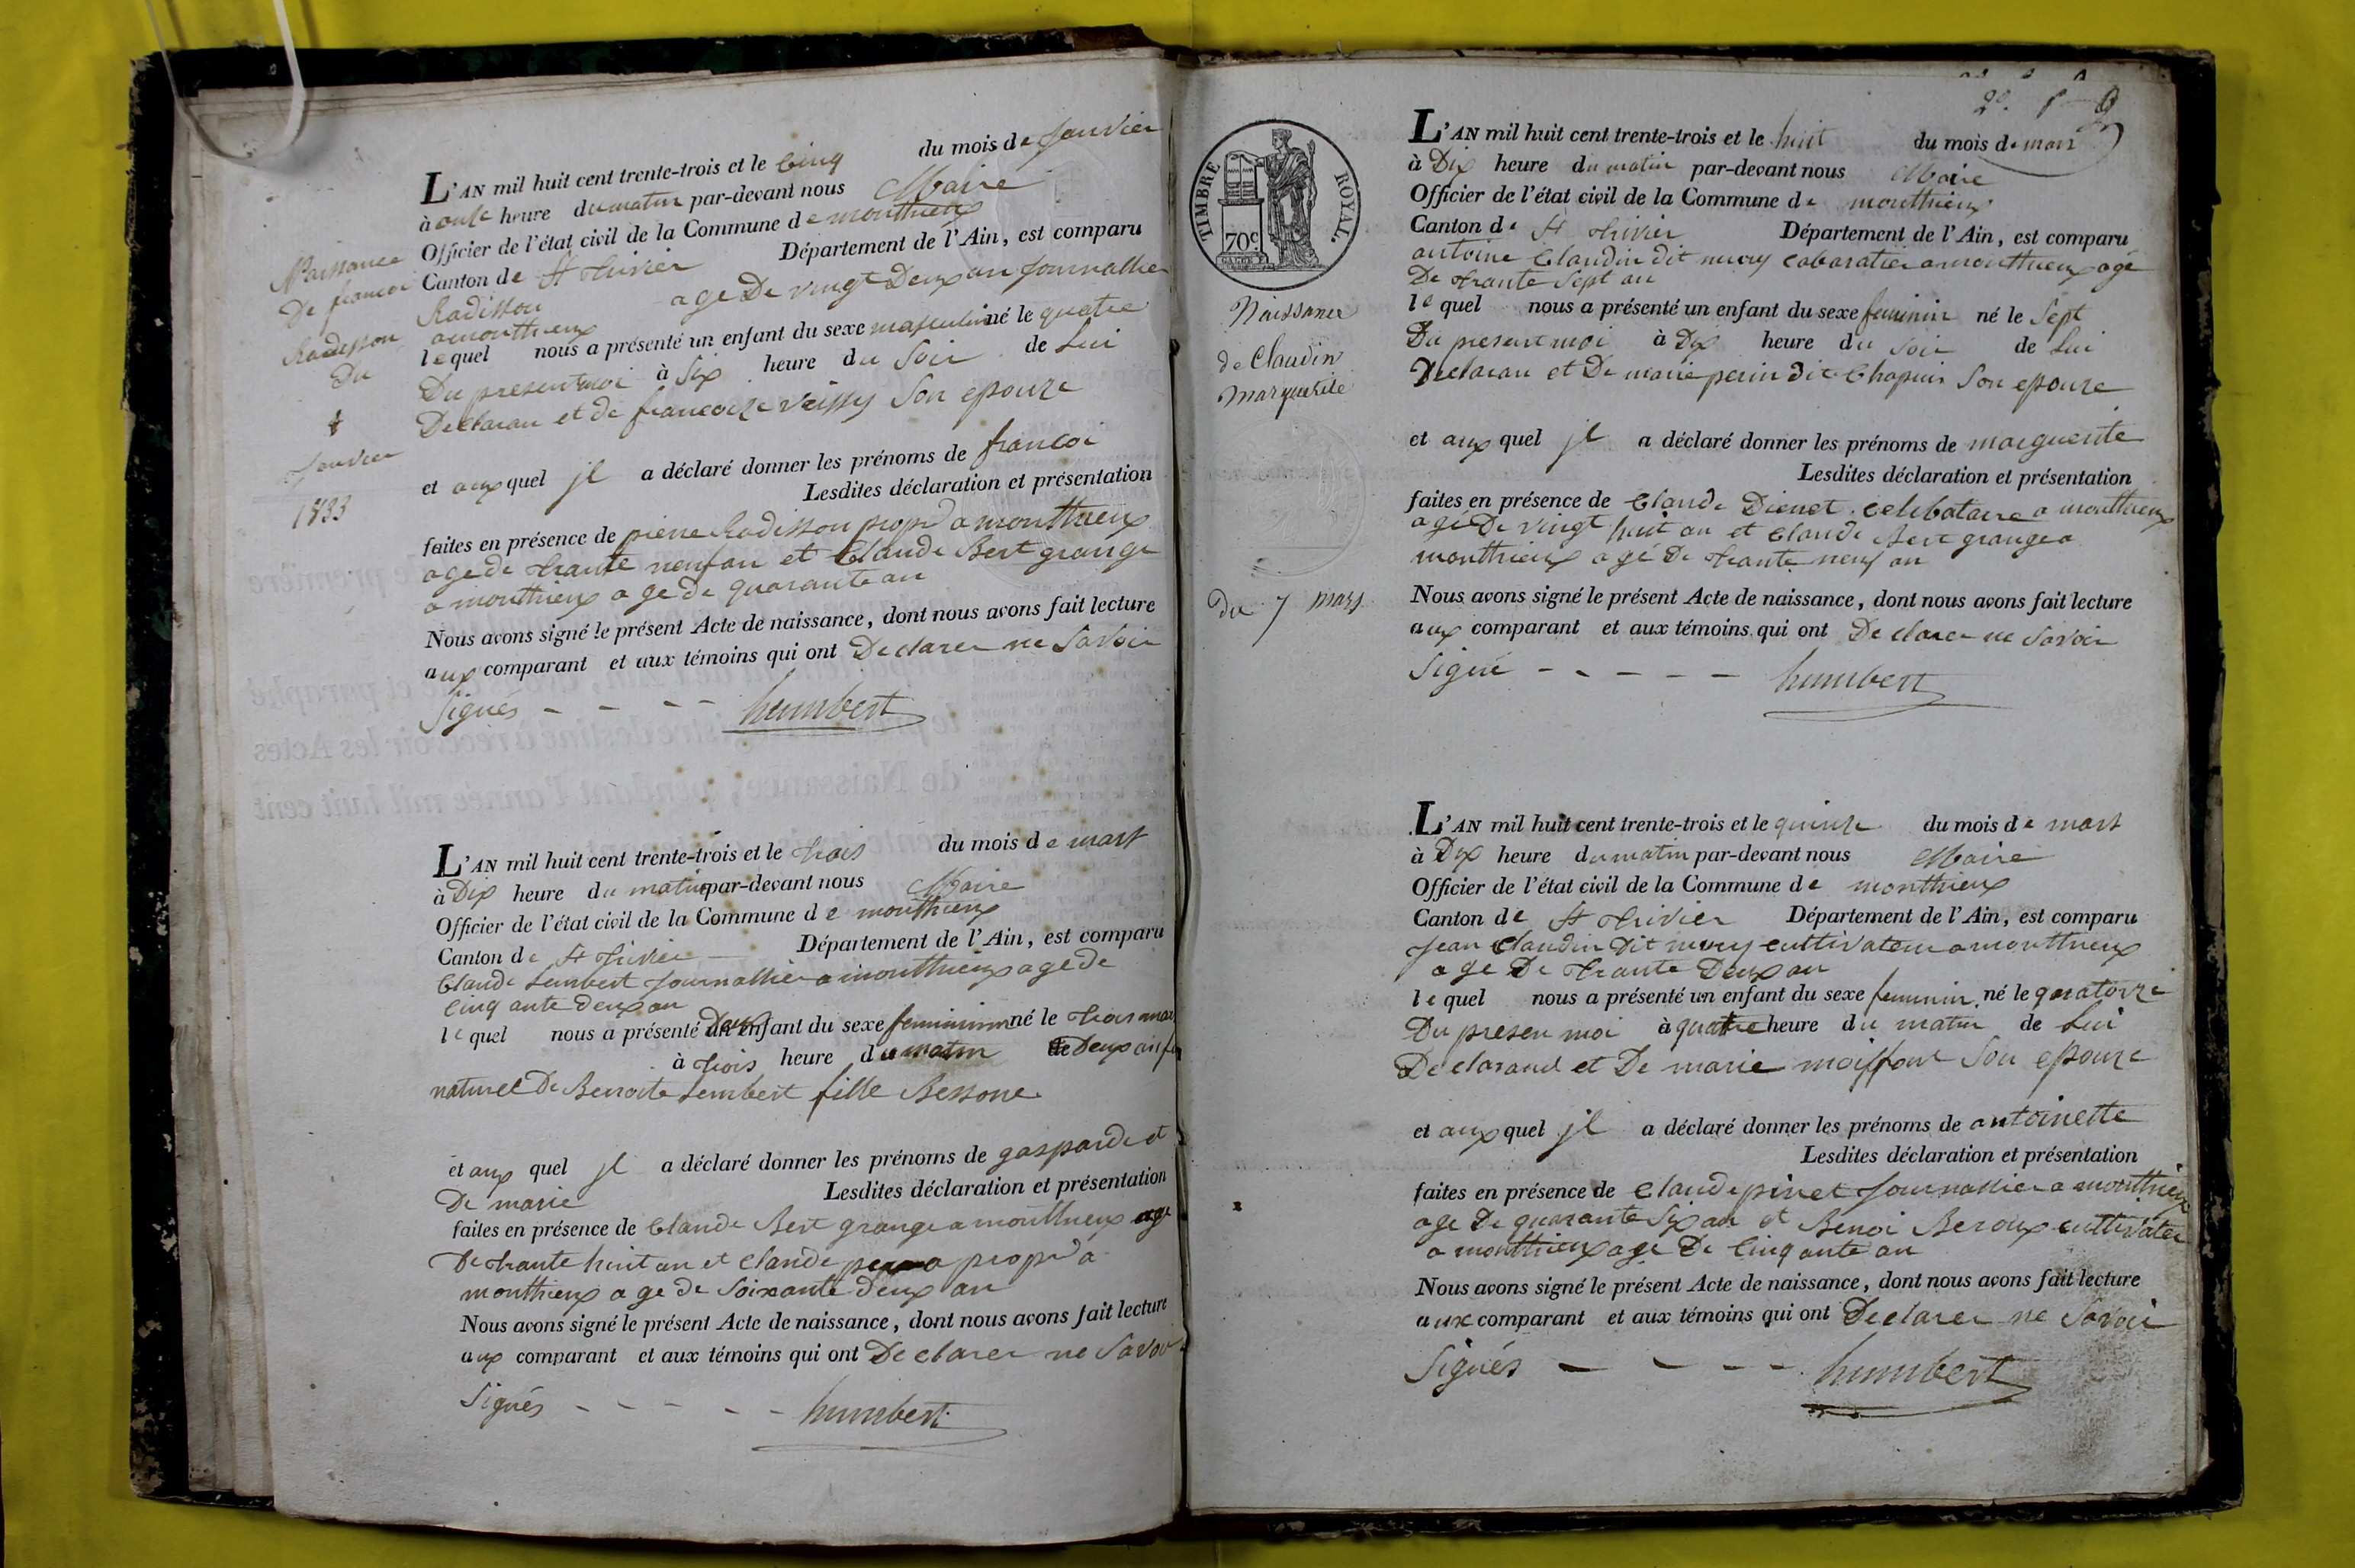 L'AN mil huit cent trente-trois et le Cinq du mois de Janvier
à onze heure du matin par-devant nous Maire
Officier de l'état civil de la Commune de monthieux
Canton de St trivier Département de l'Ain, est comparu
Radisson age De vingt Deux an Journallier
a monthieux
lequel nous a présenté un enfant du sexe masculin né le quatre
Du present moi à Six heure du Soir de Lui
Declaran et de francoize Son epouze
et aux quel jl a déclaré donner les prénoms de francoi
Lesdites déclaration et présentation
faites en présence de pierre Radisson propre a monthieux
age de trante neuf an et Claude Bert grange
a monthieux age de quarante an
Nous avons signé le présent Acte de naissance, dont nous avons fait lecture
aux comparant et aux témoins qui ont Declarer ne Savoir
Signés - - - - humbert
Naissance
De francoi
Radisson
Du
4
Janvier
1833
L'AN mil huit cent trente-trois et le trois du mois de mars
à Dix heure du matin par-devant nous Maire
Officier de l'état civil de la Commune de monthieux
Canton de St trivier Département de l'Ain, est comparu
Claude Lembert Journallier a monthieux age de
Cinq ante deux an
lequel nous a présenté Deux enfant du sexe feminim né le trois mar
à trois heure du matin de Deux anfan
naturel De Benoite Lembert fille Bessone
et aux quel jl a déclaré donner les prénoms de gasparde et
De marie Lesdites déclaration et présentation
faites en présence de Claude Bert grange a monthieux age
De trante huit an et Claude propre a
monthieux age de Soixante deux an
Nous avons signé le présent Acte de naissance, dont nous avons fait lecture
aux comparant et aux témoins qui ont Declarer ne Savoir
Signés - - - - - humbert
2e.
TIMBRE ROYAL.
70c
L'AN mil huit cent trente-trois et le huit du mois de mars
à Dix heure du matin par-devant nous Maire
Officier de l'état civil de la Commune de monthieux
Canton de St trivier Département de l'Ain, est comparu
antoine Claudin dit mury cabaratier a monthieux age
De trante Sept an
lequel nous a présenté un enfant du sexe feminin né le Sept
Du present moi à Dix heure du soir de Lui
Declaran et De marie perin dit Chapuis Son epouze
et aux quel jl a déclaré donner les prénoms de marguerite
Lesdites déclaration et présentation
faites en présence de Claude Dienet celibataire a monthieux
age De vingt huit an et Claude Bert grange a
monthieux agé De trante neuf an
Nous avons signé le présent Acte de naissance, dont nous avons fait lecture
aux comparant et aux témoins qui ont Declarer ne Savoir
Signé - - - - - humbert
Naissance
de Claudin
Marguerite
du 7 mars
L'AN mil huit cent trente-trois et le quinze du mois de mars
à Dix heure du matin par-devant nous Maire
Officier de l'état civil de la Commune de monthieux
Canton de St trivier Département de l'Ain, est comparu
Jean Claudin Dit mury cultivateur a monthieux
age De trante Deux an
lequel nous a présenté un enfant du sexe feminin né le quatorze
Du presen moi à quatre heure du matin de Lui
Declarand et De marie moiffont Son epouze
et aux quel jl a déclaré donner les prénoms de antoinette
Lesdites déclaration et présentation
faites en présence de Claude pinet Journallier a monthieux
age De quarante Six an et Benoi Beroux cultivater
a monthieux age De Cinq ante an
Nous avons signé le présent Acte de naissance, dont nous avons fait lecture
aux comparant et aux témoins qui ont Declarer ne Savoir
Signés - - - - humbert